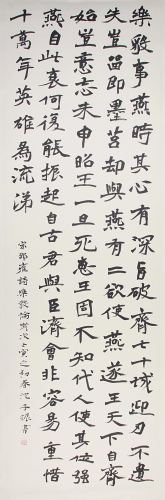 樂毅事燕時其心有深旨破齊七十城迎刃不遺
失豈留即墨莒却與燕有二欲使燕遂王天下自齊
始豈意志未申昭王一旦死惠王固不知代人使其位強
燕自此衰何復能振起自古君與臣濟會非容易重惜
千萬年英雄為流涕
宋邵雍詩樂毅論歲次寅之初春沈子振書